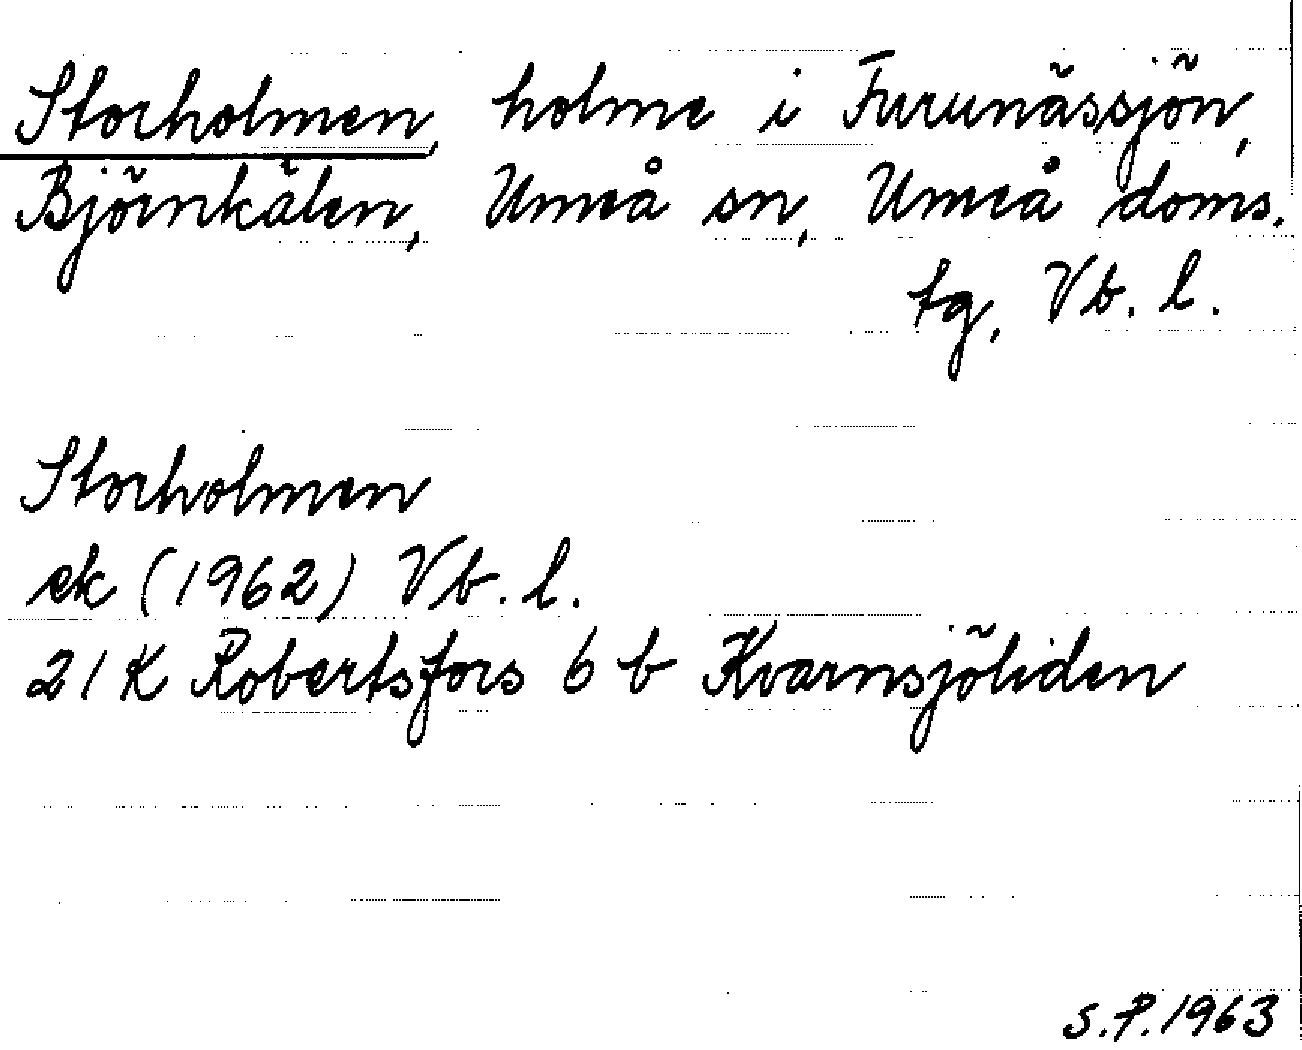 Storholmen, holme i Furunässjön,
Björnkälen, Umeå sn, Umeå doms.
tg, Vb. l.
Storholmen
ek (1962) Vb. l.
21K Robertsfors 6 b Kvarnsjöliden
S.P. 1963